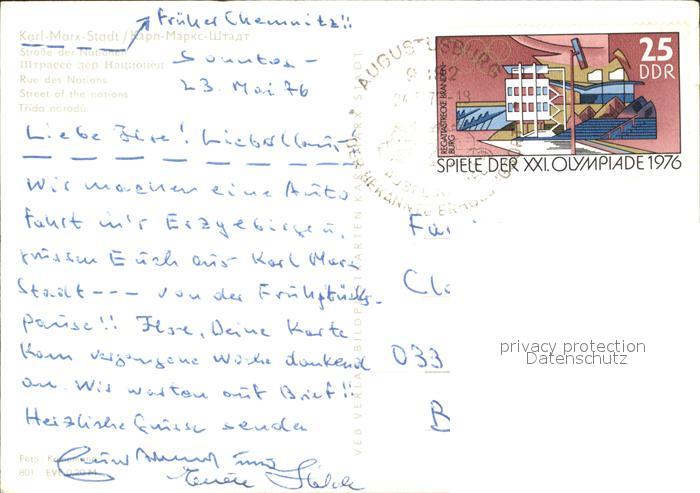 früher Chemnitz!!
Karl-Marx-Stadt / Карл-Маркс-Штадт
Straße der Nationen
Штрассе дер Национен
Rue des Nations
Street of the nations
Třída národů
Sonntag -
23. Mai 76
Liebe Ilse! Lieber
Wir machen eine Auto
fahrt in's Erzgebirge u.
grüssen Euch aus Karl Marx
Stadt --- von der Frühstücks-
pause!! Ilse, Deine Karte
kam vergangene Woche dankend
an. Wir warten auf Brief!!
Herzliche Grüsse senden
und
Foto
801
VEB
AUGUSTUSBURG
25
DDR
REGATTASTRECKE BRANDEN-
BURG
SPIELE DER XXI. OLYMPIADE 1976
Fa
033
B
privacy protection
Datenschutz